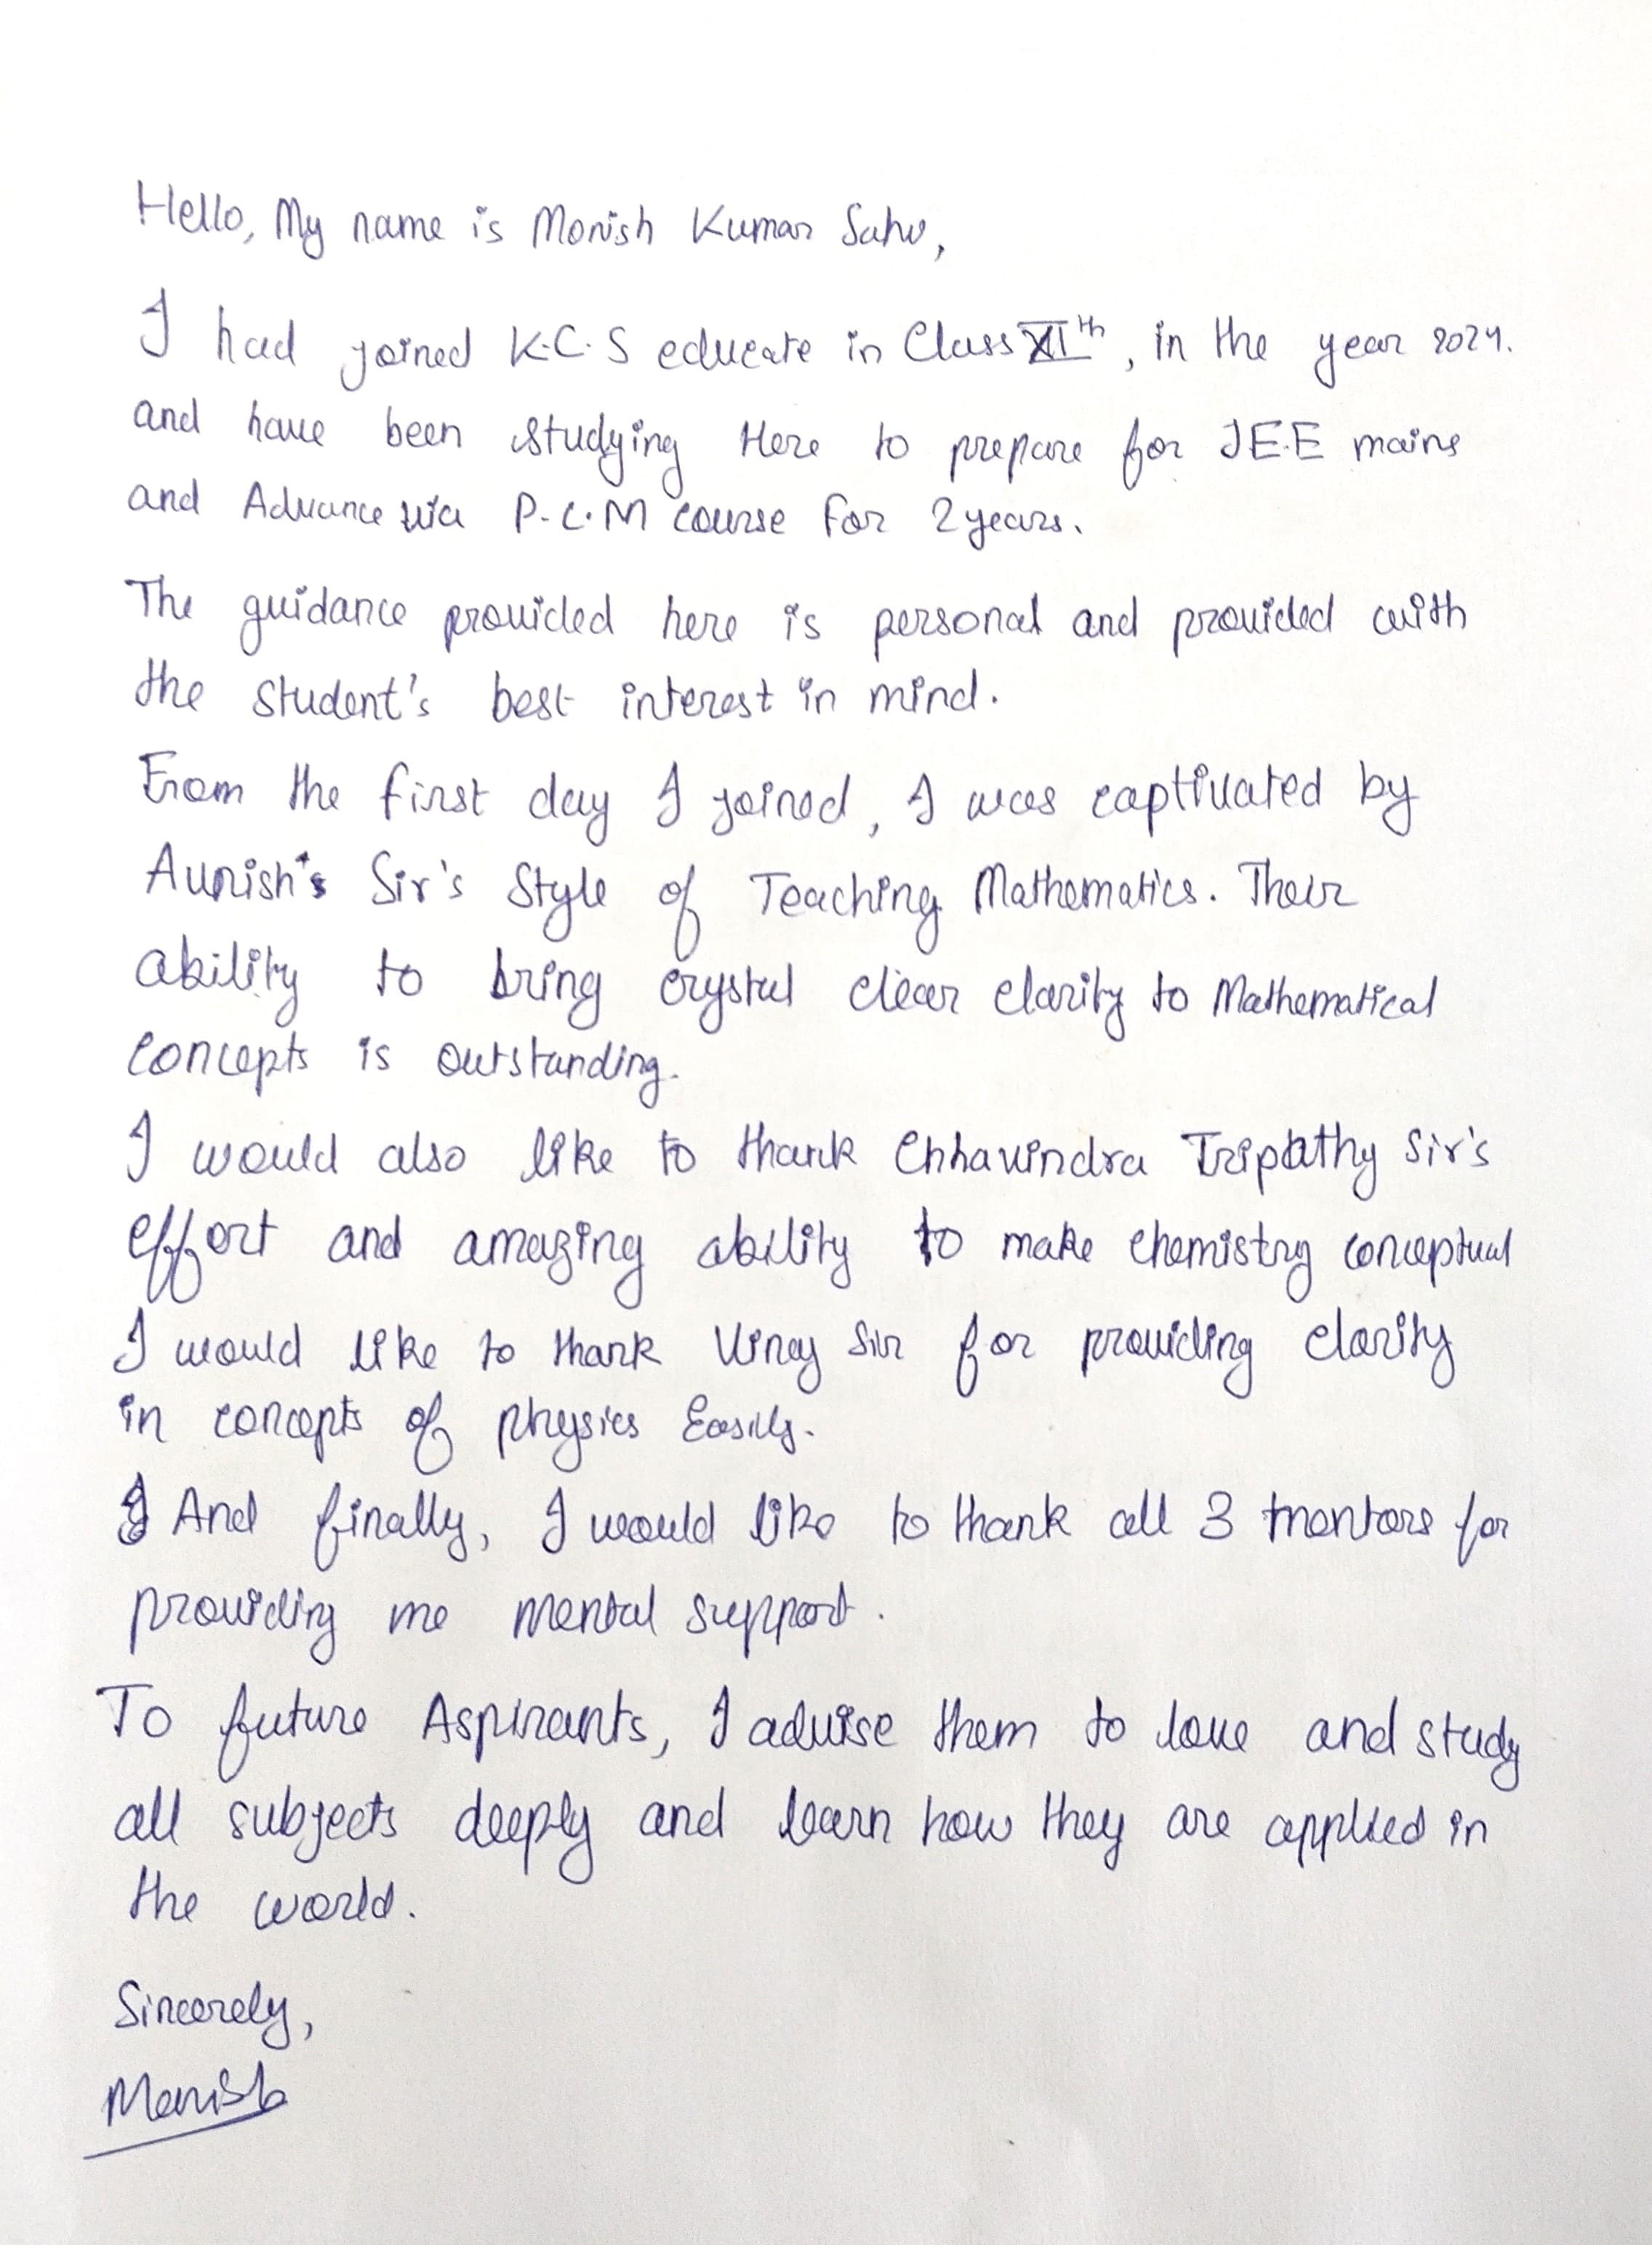 Hello, My name is Monish Kumar Sahu,
I had joined K.C.S educate in Class XIth, in the year 2024.
and have been studying Here to prepare for JE.E mains
and Advance via P.C.M course for 2 years.
The guidance provided here is personal and provided with
the student's best interest in mind.
From the first day I joined, I was captivated by
Avnish's Sir's Style of Teaching Mathematics. Their
ability to bring crystal clear clarity to Mathematical
concepts is outstanding.
I would also like to thank Chhavindra Tripathy Sir's
effort and amazing ability to make chemistry conceptual
I would like to thank Vinay Sir for providing clarity
in concepts of physics Easily.
And finally, I would like to thank all 3 mentors for
providing me mental support.
To future Aspirants, I advise them to love and study
all subjects deeply and learn how they are applied in
the world.
Sincerely,
Monish